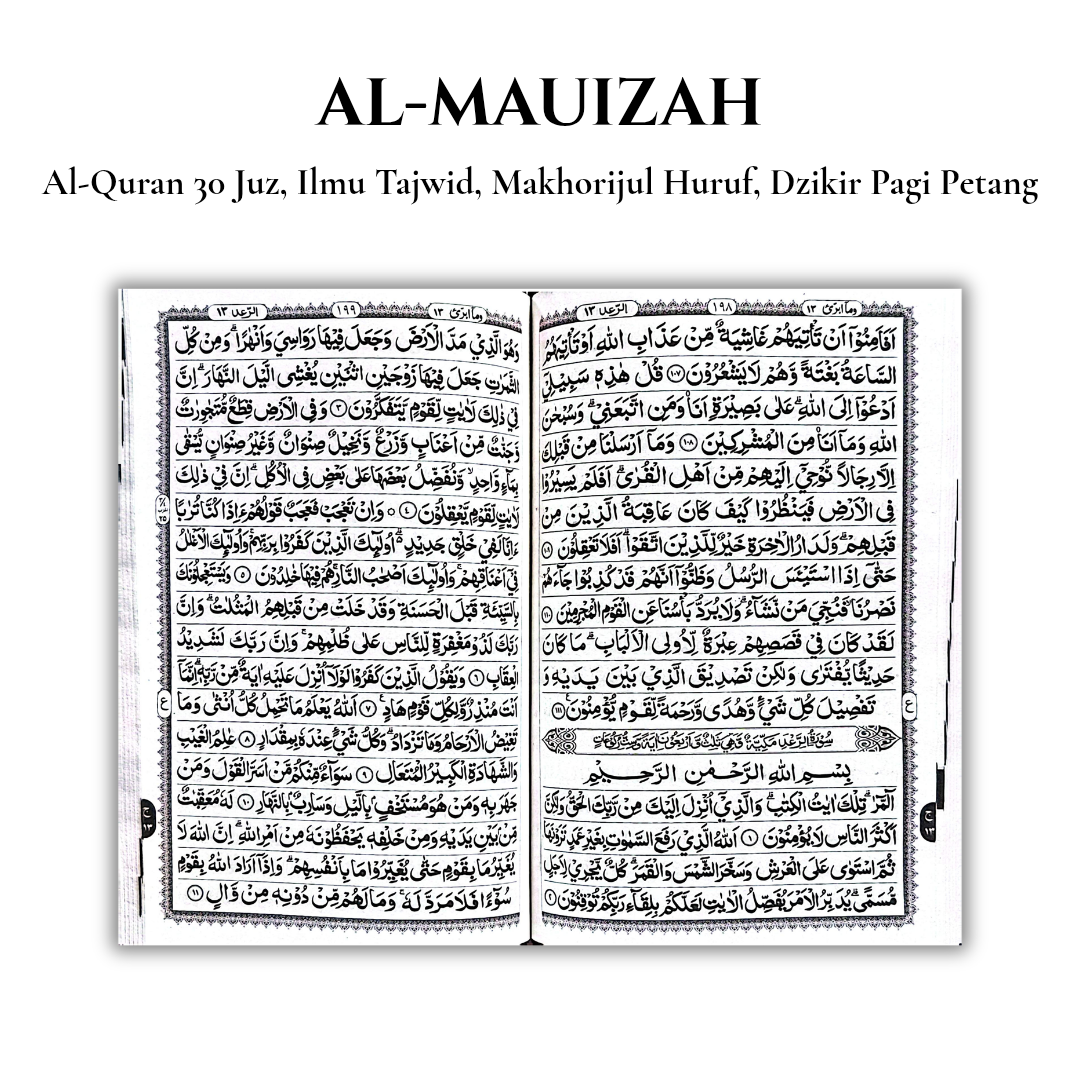 AL-MAUIZAH
Al-Quran 30 Juz, Ilmu Tajwid, Makhorijul Huruf, Dzikir Pagi Petang
وما ابرئ ١٣
١٩٨
الرّعد ١٣
اَفَاَمِنُوْٓا اَنْ تَأْتِيَهُمْ غَاشِيَةٌ مِّنْ عَذَابِ اللهِ اَوْ تَأْتِيَهُمُ
السَّاعَةُ بَغْتَةً وَّهُمْ لَا يَشْعُرُوْنَ ١٠٧ قُلْ هٰذِهٖ سَبِيْلِيْٓ
اَدْعُوْٓا اِلَى اللهِ ۗعَلٰى بَصِيْرَةٍ اَنَا۠ وَمَنِ اتَّبَعَنِيْ ۗ وَسُبْحٰنَ
اللهِ وَمَآ اَنَا۠ مِنَ الْمُشْرِكِيْنَ ١٠٨ وَمَآ اَرْسَلْنَا مِنْ قَبْلِكَ
اِلَّا رِجَالًا نُّوْحِيْٓ اِلَيْهِمْ مِّنْ اَهْلِ الْقُرٰىۗ اَفَلَمْ يَسِيْرُوْا
فِى الْاَرْضِ فَيَنْظُرُوْا كَيْفَ كَانَ عَاقِبَةُ الَّذِيْنَ مِنْ
قَبْلِهِمْ ۗ وَلَدَارُ الْاٰخِرَةِ خَيْرٌ لِّلَّذِيْنَ اتَّقَوْاۗ اَفَلَا تَعْقِلُوْنَ ١٠٩
حَتّٰٓى اِذَا اسْتَيْـَٔسَ الرُّسُلُ وَظَنُّوْٓا اَنَّهُمْ قَدْ كُذِبُوْا جَاۤءَهُمْ
نَصْرُنَا فَنُجِّيَ مَنْ نَّشَاۤءُ ۗوَلَا يُرَدُّ بَأْسُنَا عَنِ الْقَوْمِ الْمُجْرِمِيْنَ ١١٠
لَقَدْ كَانَ فِيْ قَصَصِهِمْ عِبْرَةٌ لِّاُولِى الْاَلْبَابِۗ مَا كَانَ
حَدِيْثًا يُّفْتَرٰى وَلٰكِنْ تَصْدِيْقَ الَّذِيْ بَيْنَ يَدَيْهِ وَ
تَفْصِيْلَ كُلِّ شَيْءٍ وَّهُدًى وَّرَحْمَةً لِّقَوْمٍ يُّؤْمِنُوْنَ ١١١
سُوْرَةُ الرَّعْدِ مَكِّيَّةٌ
بِسْمِ اللهِ الرَّحْمٰنِ الرَّحِيْمِ
الۤمّۤرٰۗ تِلْكَ اٰيٰتُ الْكِتٰبِۗ وَالَّذِيْٓ اُنْزِلَ اِلَيْكَ مِنْ رَّبِّكَ الْحَقُّ وَلٰكِنَّ
اَكْثَرَ النَّاسِ لَا يُؤْمِنُوْنَ ١ اَللهُ الَّذِيْ رَفَعَ السَّمٰوٰتِ بِغَيْرِ عَمَدٍ تَرَوْنَهَا
ثُمَّ اسْتَوٰى عَلَى الْعَرْشِ وَسَخَّرَ الشَّمْسَ وَالْقَمَرَۗ كُلٌّ يَّجْرِيْ لِاَجَلٍ
مُّسَمًّىۗ يُدَبِّرُ الْاَمْرَ يُفَصِّلُ الْاٰيٰتِ لَعَلَّكُمْ بِلِقَاۤءِ رَبِّكُمْ تُوْقِنُوْنَ ٢
وما ابرئ ١٣
١٩٩
الرّعد ١٣
وَهُوَ الَّذِيْ مَدَّ الْاَرْضَ وَجَعَلَ فِيْهَا رَوَاسِيَ وَاَنْهٰرًا ۗوَمِنْ كُلِّ
الثَّمَرٰتِ جَعَلَ فِيْهَا زَوْجَيْنِ اثْنَيْنِ يُغْشِى الَّيْلَ النَّهَارَۗ اِنَّ
فِيْ ذٰلِكَ لَاٰيٰتٍ لِّقَوْمٍ يَّتَفَكَّرُوْنَ ٣ وَفِى الْاَرْضِ قِطَعٌ مُّتَجٰوِرٰتٌ
وَّجَنّٰتٌ مِّنْ اَعْنَابٍ وَّزَرْعٌ وَّنَخِيْلٌ صِنْوَانٌ وَّغَيْرُ صِنْوَانٍ يُّسْقٰى
بِمَاۤءٍ وَّاحِدٍۙ وَّنُفَضِّلُ بَعْضَهَا عَلٰى بَعْضٍ فِى الْاُكُلِۗ اِنَّ فِيْ ذٰلِكَ
لَاٰيٰتٍ لِّقَوْمٍ يَّعْقِلُوْنَ ٤ وَاِنْ تَعْجَبْ فَعَجَبٌ قَوْلُهُمْ ءَاِذَا كُنَّا تُرٰبًا
ءَاِنَّا لَفِيْ خَلْقٍ جَدِيْدٍ ەۗ اُولٰۤىِٕكَ الَّذِيْنَ كَفَرُوْا بِرَبِّهِمْۚ وَاُولٰۤىِٕكَ الْاَغْلٰلُ
فِيْٓ اَعْنَاقِهِمْۚ وَاُولٰۤىِٕكَ اَصْحٰبُ النَّارِۚ هُمْ فِيْهَا خٰلِدُوْنَ ٥ وَيَسْتَعْجِلُوْنَكَ
بِالسَّيِّئَةِ قَبْلَ الْحَسَنَةِ وَقَدْ خَلَتْ مِنْ قَبْلِهِمُ الْمَثُلٰتُۗ وَاِنَّ
رَبَّكَ لَذُوْ مَغْفِرَةٍ لِّلنَّاسِ عَلٰى ظُلْمِهِمْۚ وَاِنَّ رَبَّكَ لَشَدِيْدُ
الْعِقَابِ ٦ وَيَقُوْلُ الَّذِيْنَ كَفَرُوْا لَوْلَآ اُنْزِلَ عَلَيْهِ اٰيَةٌ مِّنْ رَّبِّهٖۗ اِنَّمَآ
اَنْتَ مُنْذِرٌ وَّلِكُلِّ قَوْمٍ هَادٍ ٧ اَللهُ يَعْلَمُ مَا تَحْمِلُ كُلُّ اُنْثٰى وَمَا
تَغِيْضُ الْاَرْحَامُ وَمَا تَزْدَادُ ۗوَكُلُّ شَيْءٍ عِنْدَهٗ بِمِقْدَارٍ ٨ عٰلِمُ الْغَيْبِ
وَالشَّهَادَةِ الْكَبِيْرُ الْمُتَعَالِ ٩ سَوَاۤءٌ مِّنْكُمْ مَّنْ اَسَرَّ الْقَوْلَ وَمَنْ
جَهَرَ بِهٖ وَمَنْ هُوَ مُسْتَخْفٍۢ بِالَّيْلِ وَسَارِبٌۢ بِالنَّهَارِ ١٠ لَهٗ مُعَقِّبٰتٌ
مِّنْۢ بَيْنِ يَدَيْهِ وَمِنْ خَلْفِهٖ يَحْفَظُوْنَهٗ مِنْ اَمْرِ اللهِ ۗاِنَّ اللهَ لَا
يُغَيِّرُ مَا بِقَوْمٍ حَتّٰى يُغَيِّرُوْا مَا بِاَنْفُسِهِمْۗ وَاِذَآ اَرَادَ اللهُ بِقَوْمٍ
سُوْۤءًا فَلَا مَرَدَّ لَهٗۚ وَمَا لَهُمْ مِّنْ دُوْنِهٖ مِنْ وَّالٍ ١١
ع
ع